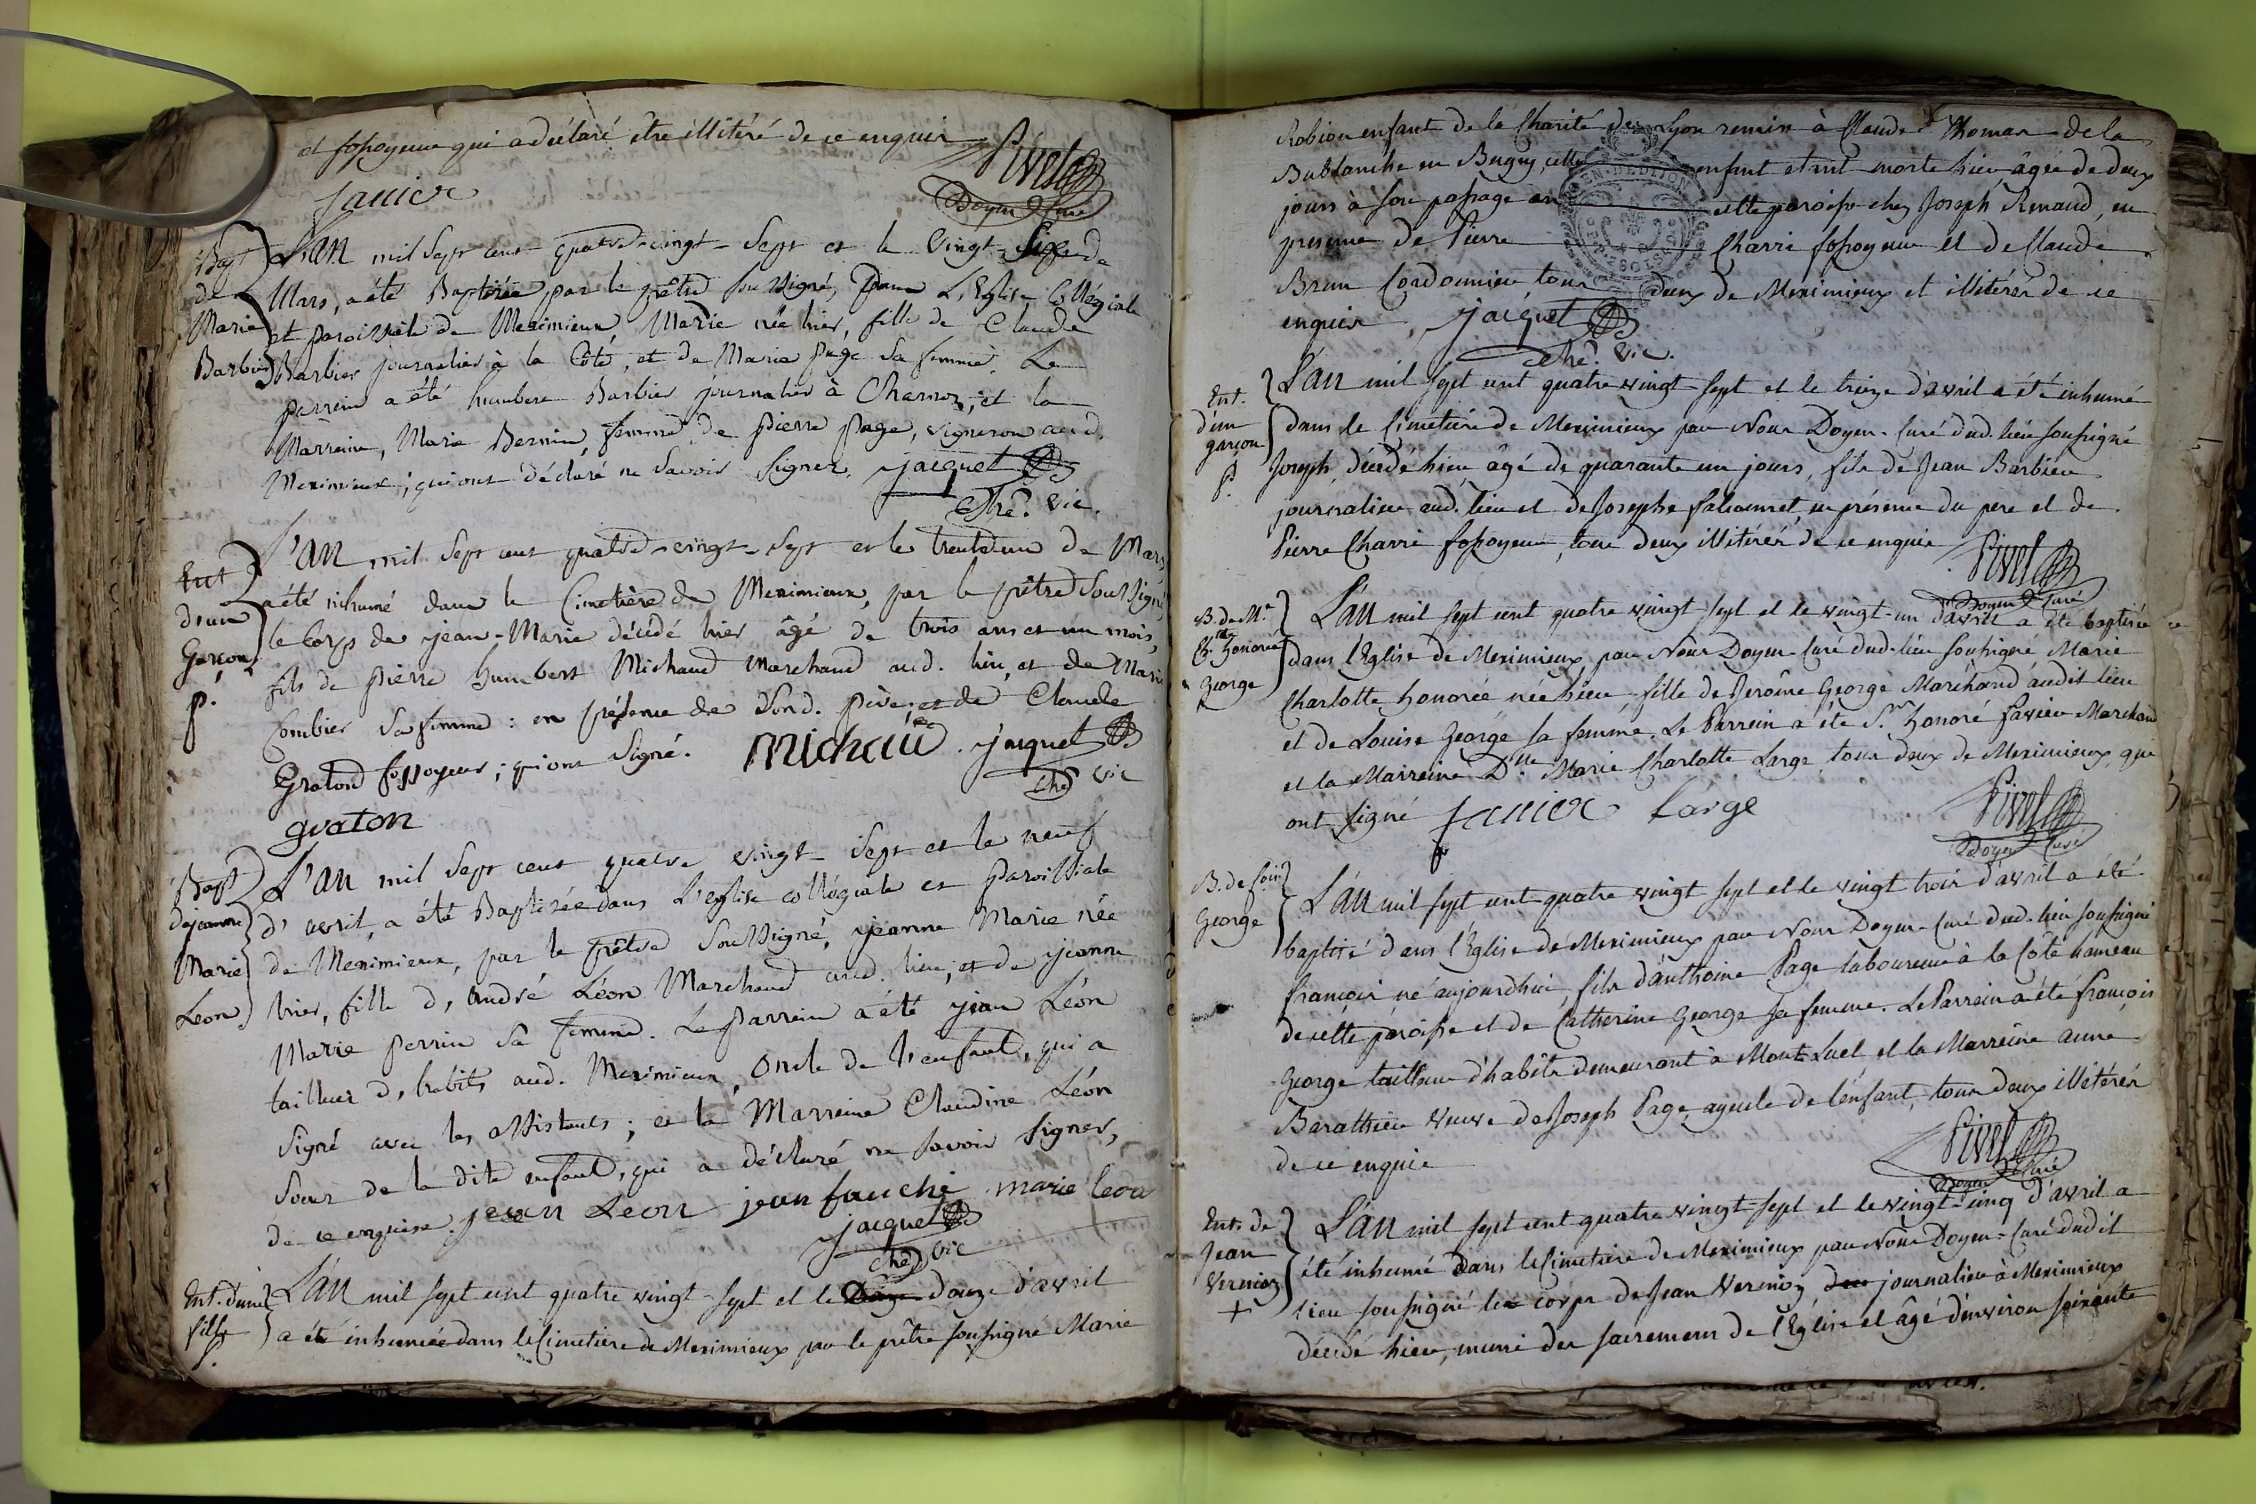 et fossoyeur qui a déclaré être illitéré de ce enquir
Pivet
Janier
Doyen Curé
Bapt
de
Marie
Barbier
L'an mil sept cent quatre-vingt-sept et le vingt-six de
Mars, a été Baptisée par le prêtre soussigné, dans L'Eglise Collégiale
et paroissiale de Meximieux Marie née hier, fille de Claude
Barbier journalier à la Côte, et de Marie Page sa femme. Le
parrein a été humbert Barbier journalier à Charnoz; et la
Marreine, Marie Bernin femme de pierre page, vigneron aud.
Meximieux; qui ont déclaré ne savoir signer. jacquet
Che. vic.
Ent
d'un
Garçon
p.
L'an mil sept cent quatre-vingt-sept et le trente un de Mars
a été inhumé dans le Cimetière de Meximieux, par le prêtre Soussigné,
le corps de jean-Marie décédé hier âgé de trois ans et un mois,
fils de pierre humbert Michaud Marchand aud. lieu, et de Marie
Combier sa femme: en présence de Sond. père; et de Claude
Graton fossoyeur; qui ont signé. michaud. jacquet
Che vic
graton
Bapt
de jeanne
Marie
Léon
L'an mil sept cent quatre vingt-sept et le neuf
d'avril, a été Baptisée dans L'eglise collégiale et paroissiale
de Meximieux, par le prêtre soussigné, jeanne Marie née
hier, fille d'andré Léon Marchand aud. lieu, et de jeanne
Marie perrin sa femme. Le parrein a été jean Léon
tailleur d'habits aud. Meximieux, oncle de l'enfant, qui a
signé avec les assistants; et la Marreine Claudine Léon
soeur de la dite enfant, qui a déclaré ne savoir signer,
de ce enquise. jean Leon jean fauche marie leon
jacquet
Che vic
Ent. d'une
fille
p.
L'an mil sept cent quatre vingt-sept et le douze d'avril
a été inhumée dans le Cimetiere de Meximieux par le prêtre soussigné Marie
Robion enfant de la Charité de Lyon remise à Claude Thomas de la
Bublanche en Bugey, cette enfant étant morte hier âgée de deux
jours à son passage en cette paroisse chez Joseph Renaud, en
présence de Pierre Charri fossoyeur et de Claude
Brun Cordonnier, tous deux de Meximieux et illitérés de ce
enquis. jacquet
Che. vic.
Ent.
d'un
garçon
p.
L'an mil sept cent quatre vingt-sept et le treize d'avril a été inhumé
dans le Cimetiere de Meximieux par Nous Doyen-Curé dud. lieu soussigné
Joseph, décédé hier âgé de quarante un jours, fils de Jean Barbier
journalier aud. lieu et de Josephe falconnet, en présence du pere et de
Pierre Charri fossoyeur, tous deux illitérés de ce enquis
Pivet
Doyen Curé
B. de Me
Ch.tte honorée
George
L'an mil sept cent quatre vingt-sept et le vingt-un d'avril a été baptisée
dans l'Eglise de Meximieux, par Nous Doyen Curé dud. lieu soussigné Marie
Charlotte honorée née hier, fille de Jerôme George Marchand audit lieu
et de Louise George sa femme. Le Parrein a été Sr. honoré Janier Marchand
et la Marreine Dlle Marie Charlotte Large tous deux de Meximieux, qui
ont signé Janier Large Pivet
Doyen Curé
B. de f.ois
George
L'an mil sept cent quatre vingt sept et le vingt trois d'avril a été
baptisé dans l'Eglise de Meximieux par Nous Doyen-Curé dud. lieu soussigné
françois né aujourdhui, fils d'anthoine Page laboureur à la Côte hameau
de cette paroisse et de Catherine George sa femme. Le Parrein a été françois
George tailleur d'habits demeurant à Mont-Luel et la Marreine anne
Barathieu veuve de Joseph Page, ayeule de l'enfant, tous deux illitérés
de ce enquis
Pivet
Doyen Curé
Ent. de
Jean
Vernioz
+
L'an mil sept cent quatre vingt-sept et le vingt-cinq d'avril a
été inhumé dans le Cimetiere de Meximieux par Nous Doyen-Curé dudit
lieu soussigné le corps de Jean Vernioz, journalier à Meximieux
décédé hier, muni des sacremens de l'Église et âgé d'environ soixante